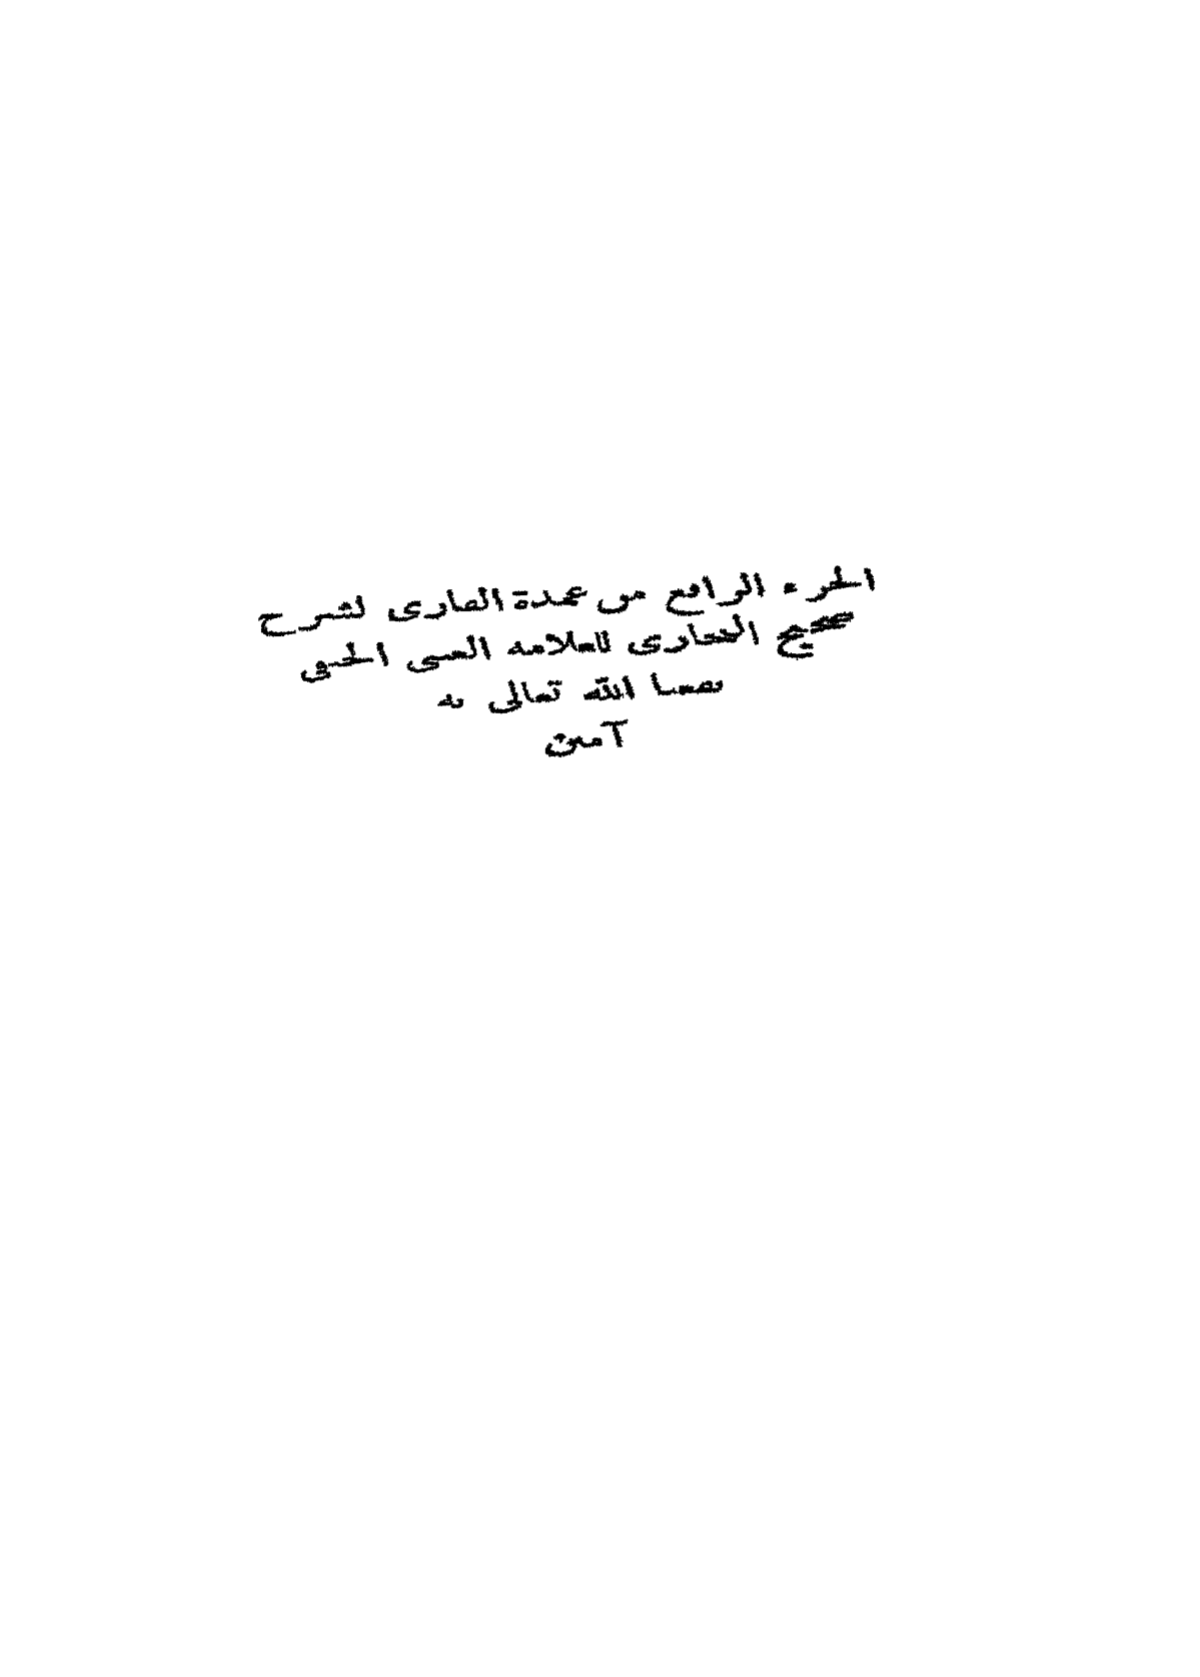 الجزء الرابع من عمدة القارى لشرح
صحيح البخارى للعلامة العينى الحنفى
نفعنا الله تعالى به
آمين